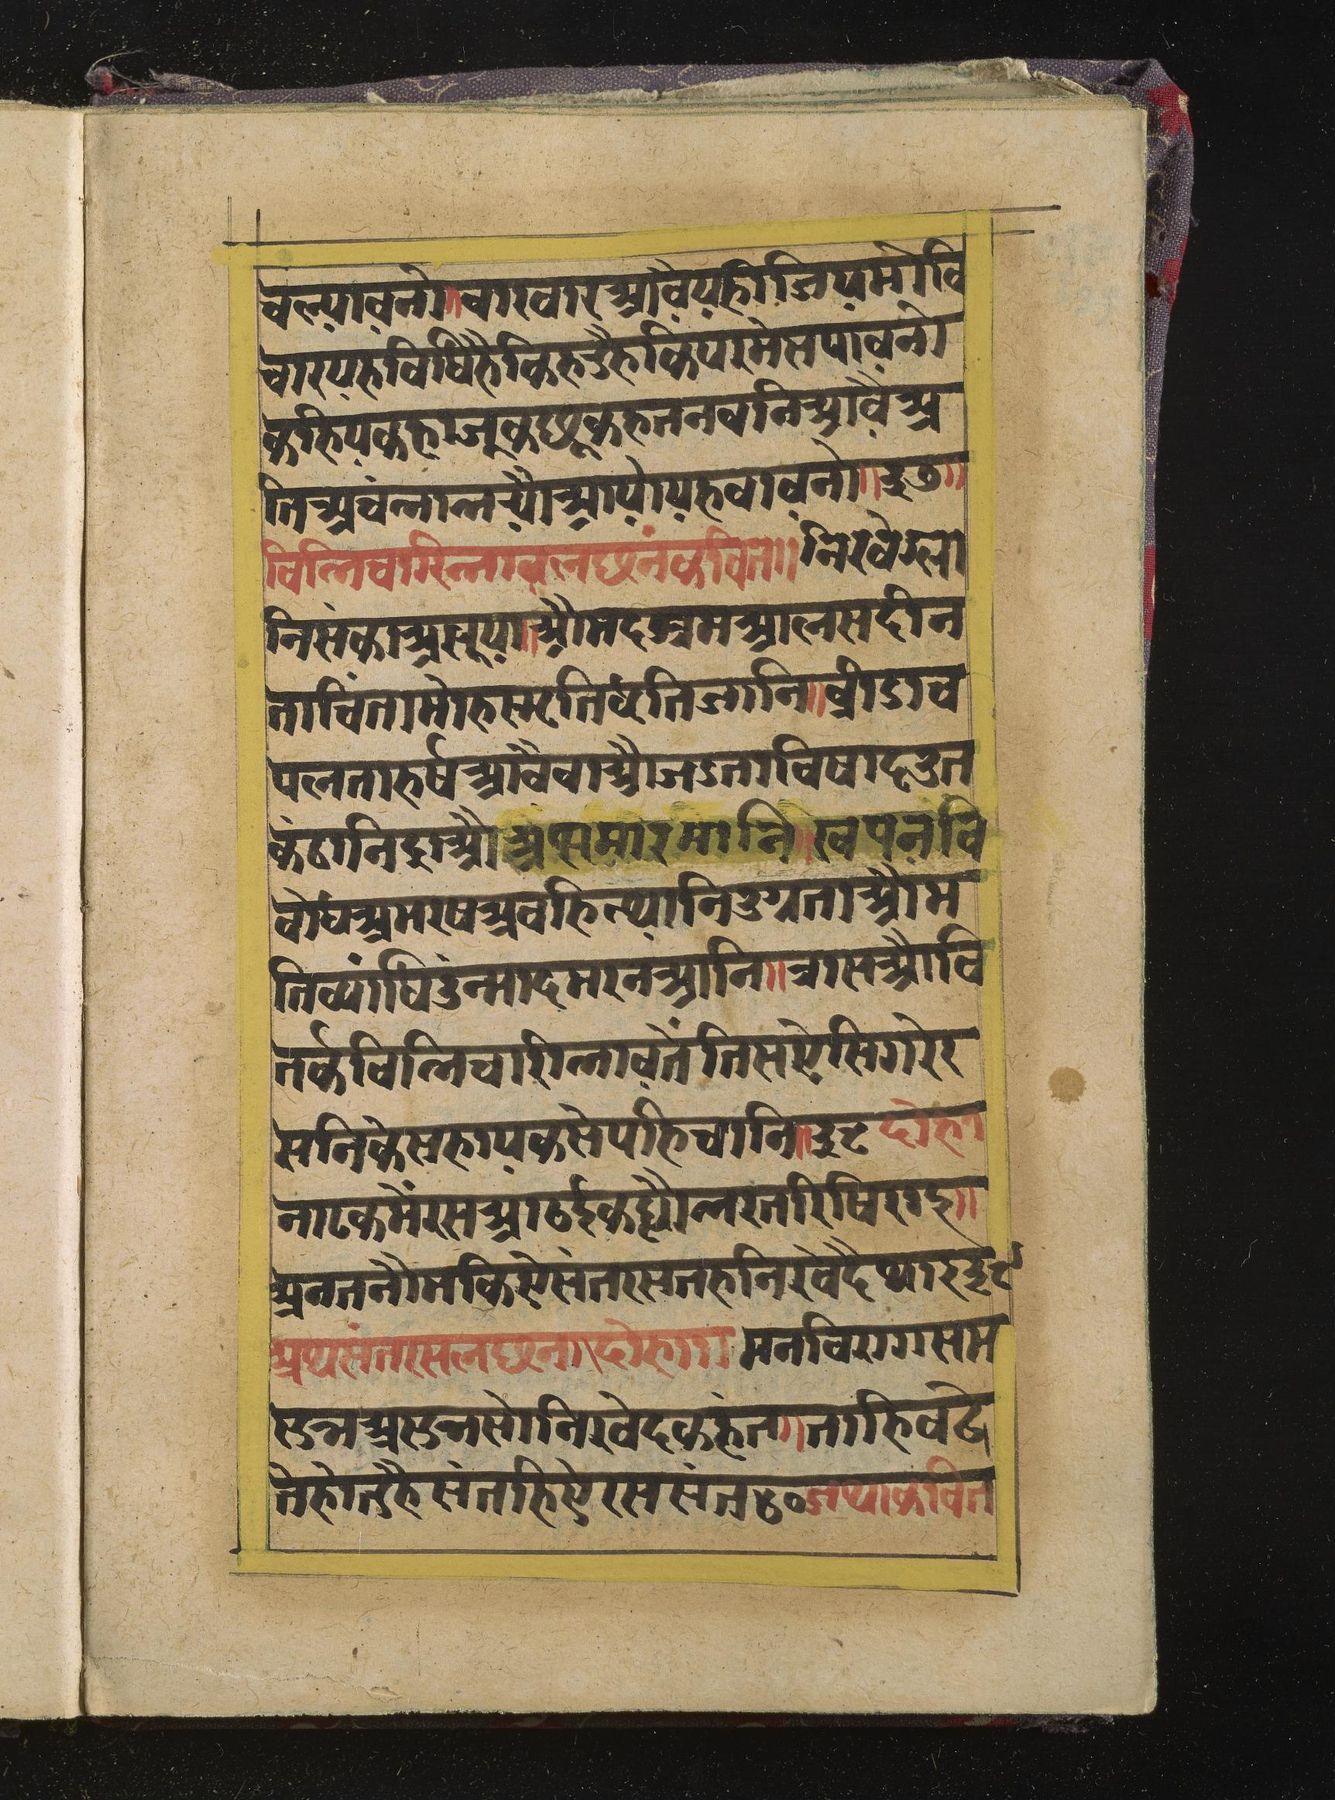 बल्यावनो॥ वारवार आवै यही जिय मो वि
चार यह विधि है कि हु है कि परमेस पावनो
कहिय कहा जू कछू कहत न बनि आवै अ
ति अचंभा भयौ आयो यह बावनो॥३७॥
विभिचारिभाव लछनं कवित॥ निरवेग्ला
नि संका असूया॥ औ मद श्रम आलस दीन
ता चिंता मोह स्मृति धृति जानि॥ व्रीडा च
पलता हर्ष आवै वा औ जडता विषाद उत
कंठा निद्रा औ अप्समार मानि॥ स्वपन वि
वोध अमरष अवहित्या नि उग्रता औ म
ति व्याधि उन्माद मरन आनि॥ त्रास औ वि
तर्क विभिचारि भाव तैंतिस ऐ सिगरे र
सनि के सहायक से पहिचानि॥३८ दोहा
नाटक मैं रस आठई कह्यौ भरत रिषिराइ॥
अनत नौम किऐ संत रस तह निरवेदै थाइ ३९
अथ संत रस लछन॥ दोहा॥ मन विराग सम
सत्रु असत्रु सो निरवेद कहंत॥ ताहि बढे
ते होत है संत हिऐ रस संत ४० जथा कवित